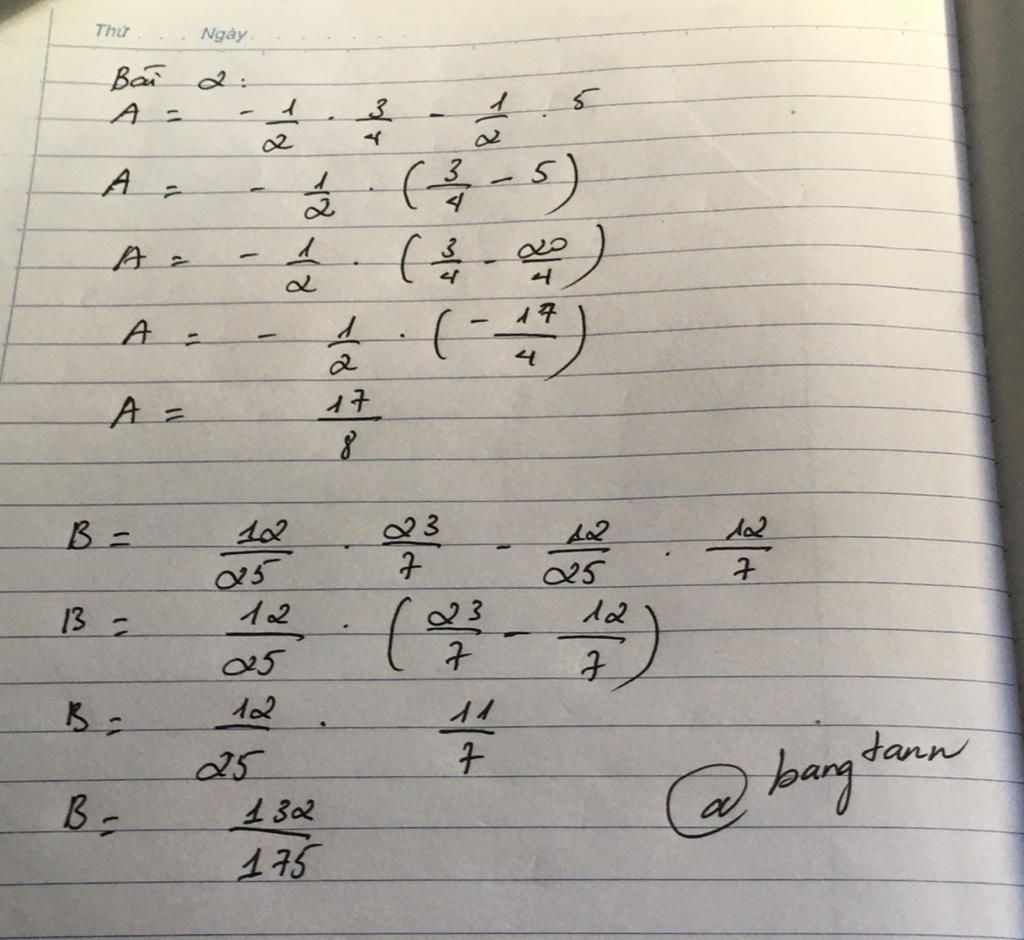 Thứ . . . . Ngày . . . . . . .
Bài 2:
A = - 1/2 . 3/4 - 1/2 . 5
A = - 1/2 . (3/4 - 5)
A = - 1/2 . (3/4 - 20/4)
A = - 1/2 . (- 17/4)
A = 17/8
B = 12/25 . 23/7 - 12/25 . 12/7
B = 12/25 . (23/7 - 12/7)
B = 12/25 . 11/7
B = 132/175
@bangtann